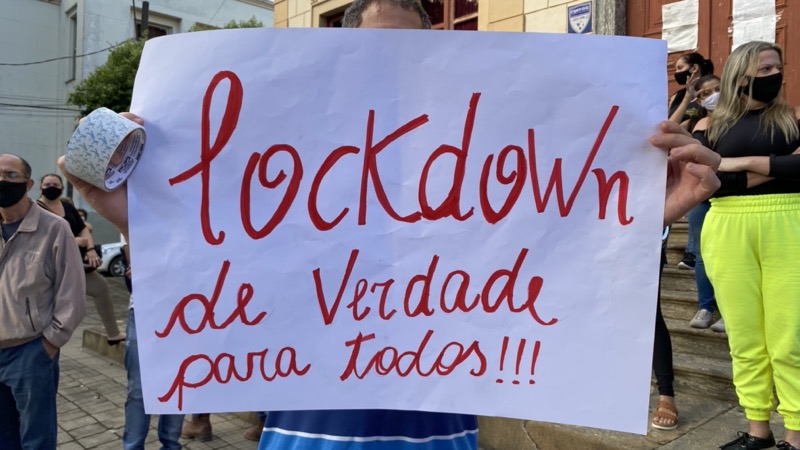 lockdown
de Verdade
para todos!!!